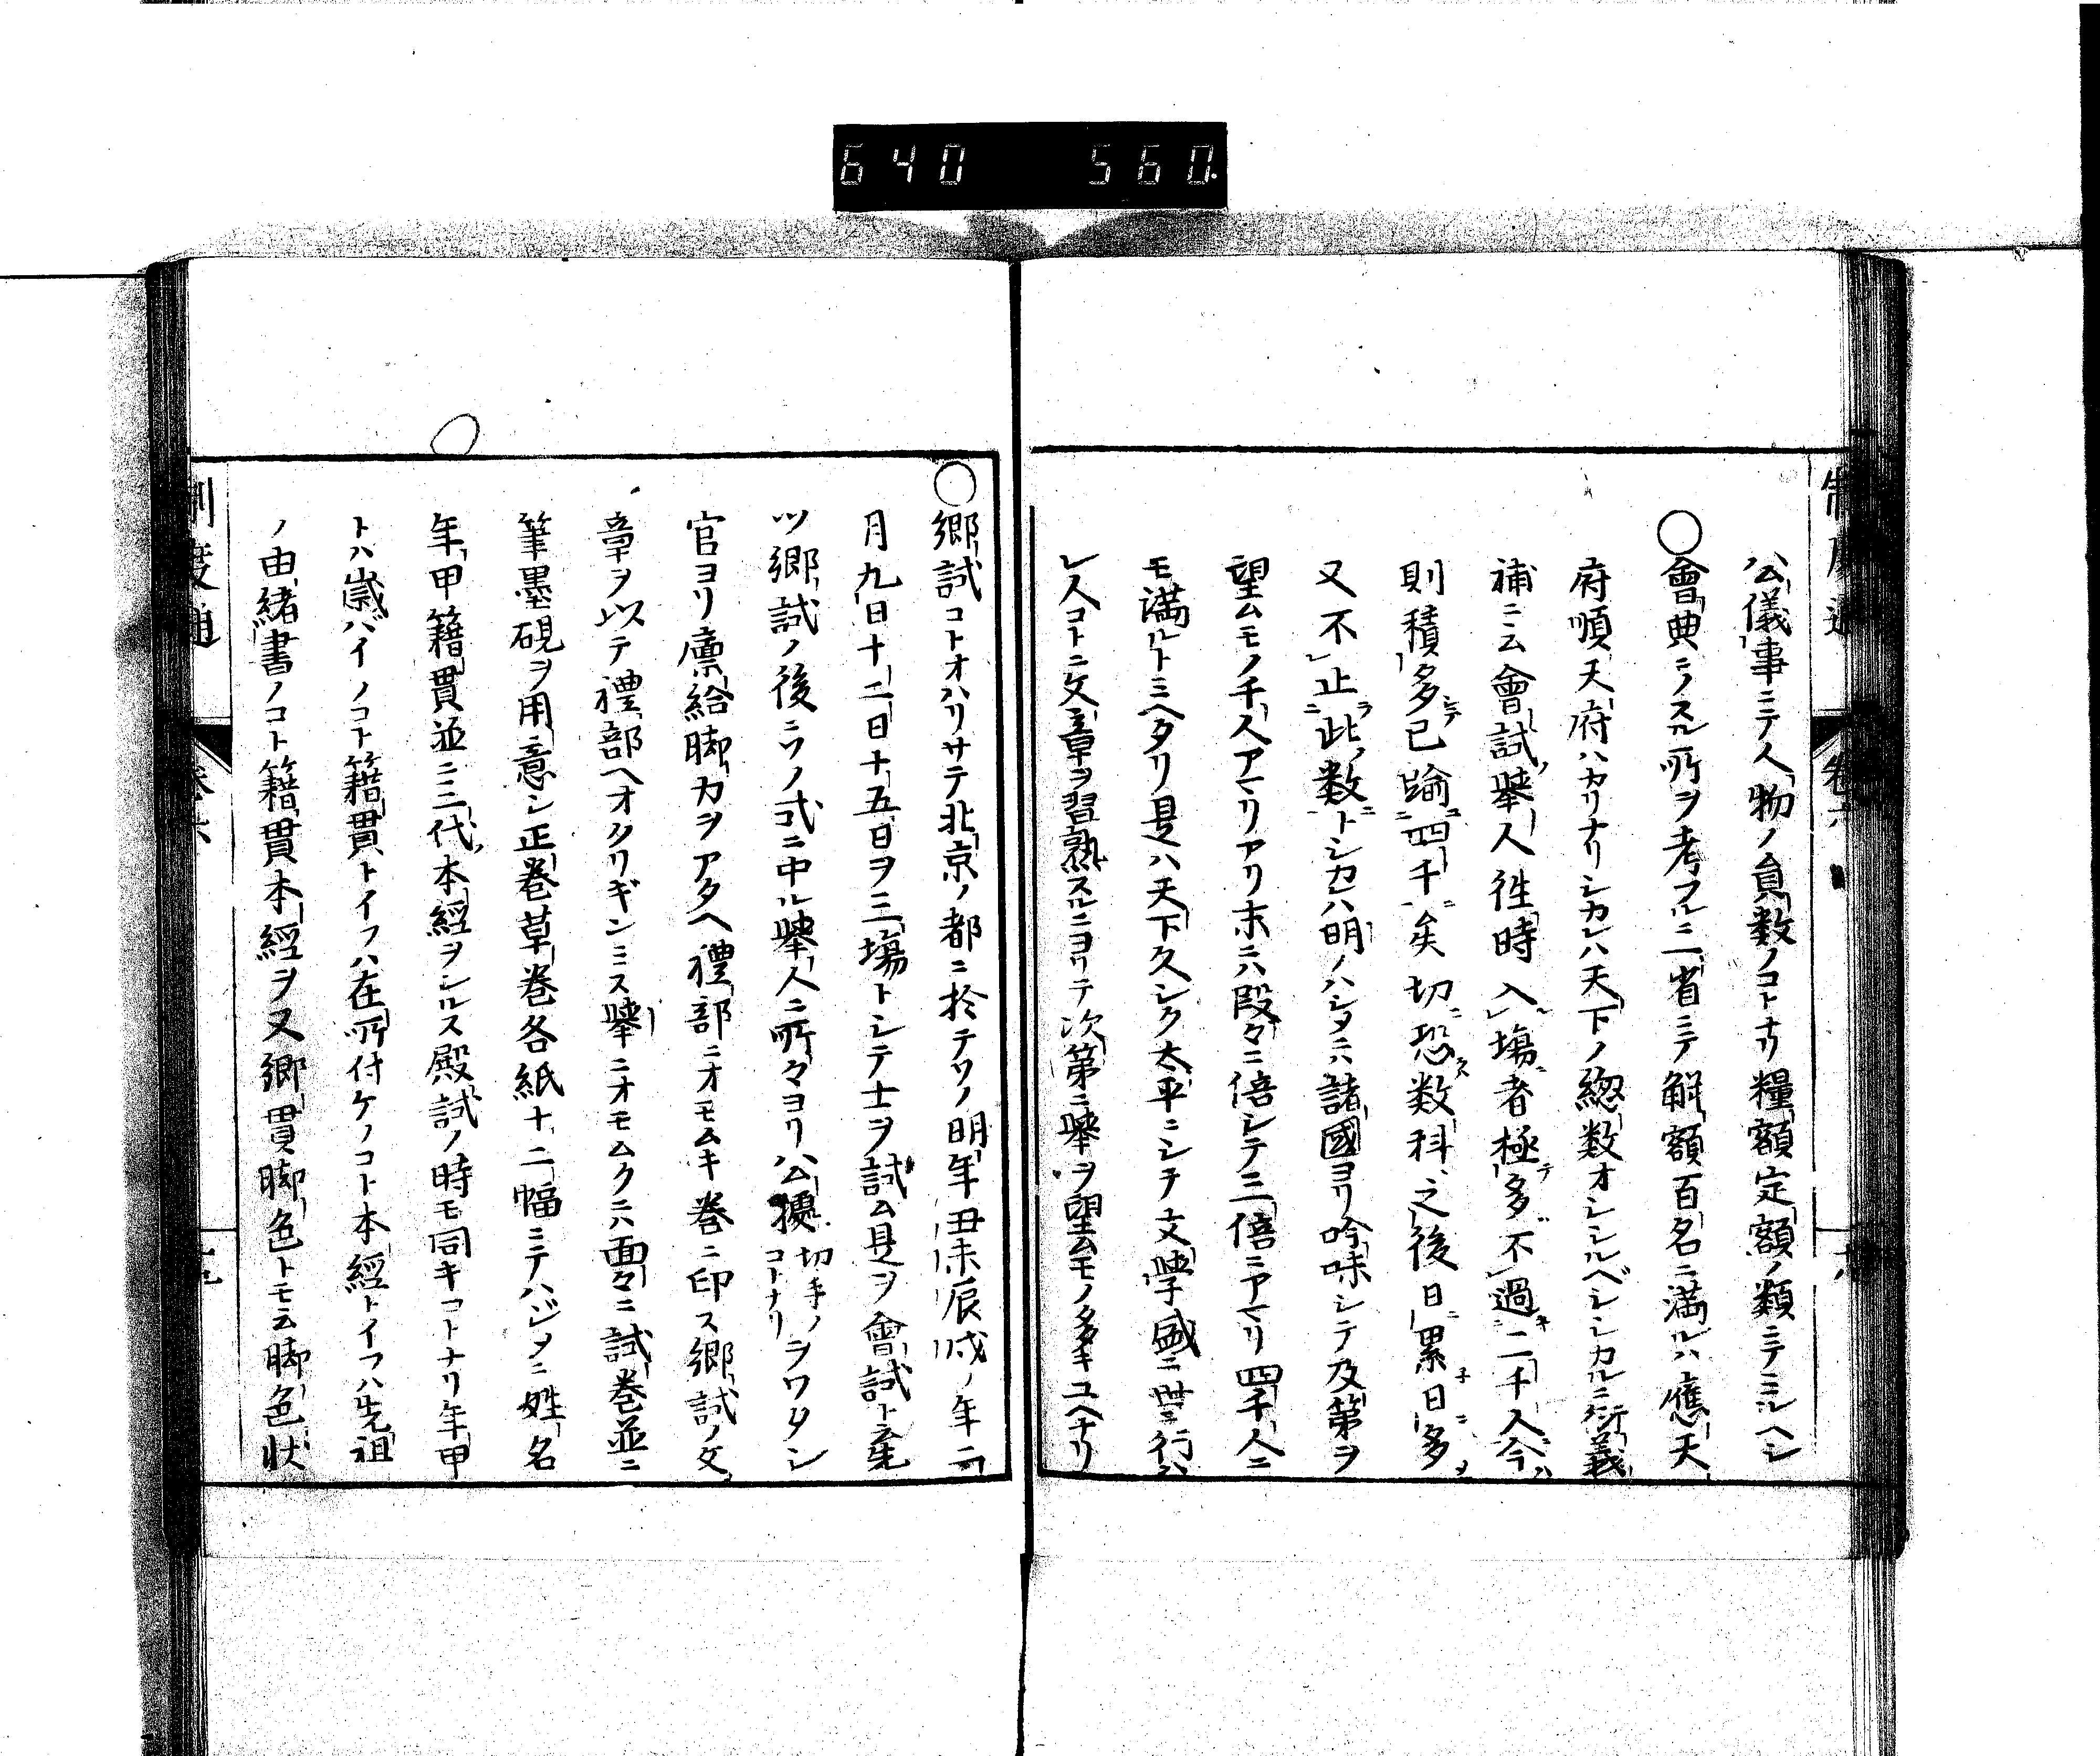 640 560.
公儀事ニテ人物ノ員数ノコトナリ糧額定額ノ類ニテミルヘシ
○會典ニノスル所ヲ考フルニ二省ニテ解額百名ニ満ルハ應天
府順天府ハカリナリシカレハ天下ノ総数オシシルベシシカルニ衍義
補ニ云會試舉人徃時入場者極多不過二千人今
則積多已踰四千矣切恐数科之後日累日多
又不止此数トシカレハ明ノハシメニハ諸國ヨリ吟味シテ及第ヲ
望ムモノ千人アマリアリ末ニハ段々ニ倍シテ三倍ニアマリ四千人ニ
モ満ルトミヘタリ是ハ天下久シク太平ニシテ文學盛ニ世ニ行ハ
レ人コトニ文章ヲ習熟スルニヨリテ次第ニ舉ヲ望ムモノ多キユヘナリ
○郷試コトオハリサテ北京ノ都ニ於テソノ明年丑未辰戌ノ年二
月九日十二日十五日ヲ三場トシテ士ヲ試ム是ヲ會試ト云先
ツ郷試ノ後ニソノ式ニ中ル舉人ニ所々ヨリ公據切手ノコトナリヲワタシ
官ヨリ廪給脚力ヲアタヘ禮部ニオモムキ巻ニ印ス郷試ノ文
章ヲ以テ禮部ヘオクリギンミス舉ニオモムクニハ面々ニ試巻並ニ
筆墨硯ヲ用意シ正巻草巻各紙十二幅ニテハジメニ姓名
年甲籍貫並ニ三代本經ヲシルス殿試ノ時モ同キコトナリ年甲
トハ歳バイノコト籍貫トイフハ在所付ケノコト本經トイフハ先祖
ノ由緒書ノコト籍貫本經ヲ又郷貫脚色トモ云脚色状
制度通
巻六